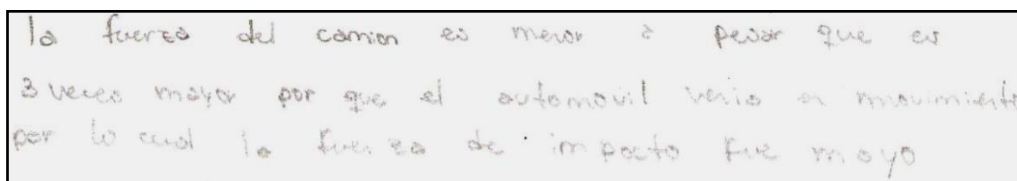 la fuerza del camion es menor a pesar que es
3 veces mayor por que el automovil venia en movimiento
por lo cual la fuerza de impacto fue mayo